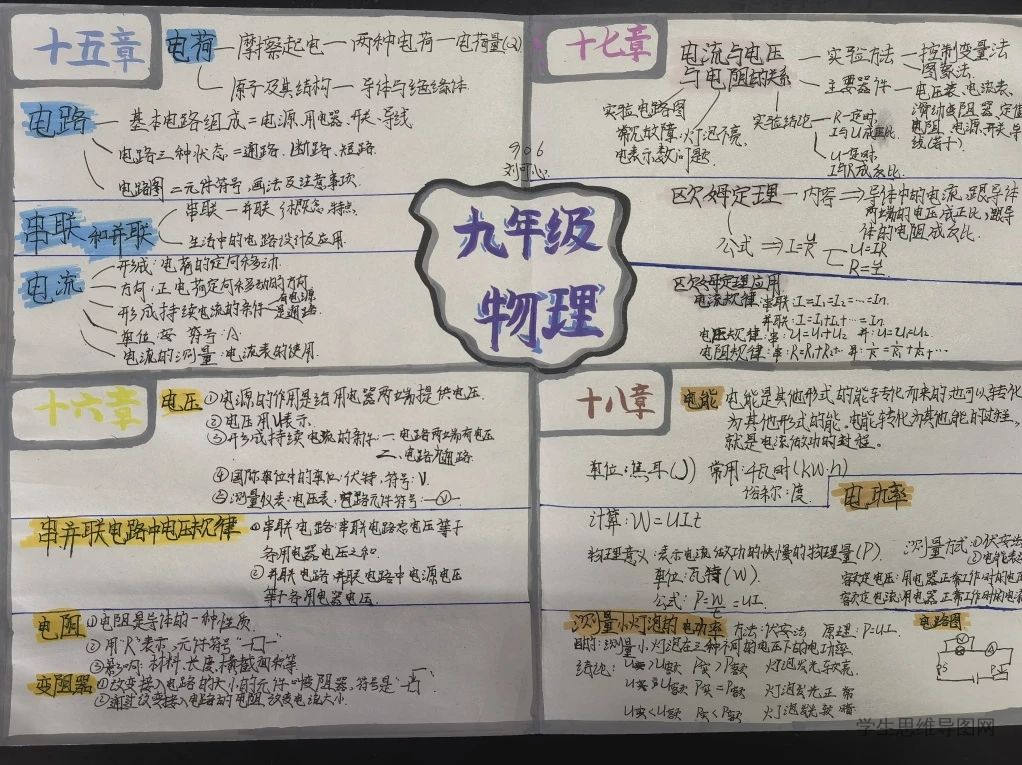 十五章
电荷—摩擦起电—两种电荷—电荷量(Q)
原子及其结构—导体与绝缘体
电路—基本电路组成=电源、用电器、开关、导线
电路三种状态=通路、断路、短路
电路图=元件符号,画法及注意事项
串联和并联
串联—并联 概念 特点
生活中的电路设计及应用
电流
形成:电荷的定向移动
方向:正电荷定向移动的方向
形成持续电流的条件
有电源
是通路
单位:安 符号:A
电流的测量:电流表的使用
906
九年级
物理
十七章
电流与电压
与电阻的关系
实验方法—控制变量法
图象法
主要器件—电压表、电流表、
滑动变阻器、定值
电阻、电源、开关、导
线(若干)
实验电路图
常见故障:灯泡不亮,
电表示数问题
实验结论
R一定时,
I与U成正比
U一定时
I与R成反比
欧姆定理—内容⇒导体中的电流,跟导体
两端的电压成正比,跟导
体的电阻成反比
公式⇒I=U/R
U=IR
R=U/I
欧姆定理应用
电流规律:串联:I=I₁=I₂=…=In
并联:I=I₁+I₂+…=In
电压规律:串:U=U₁+U₂ 并:U=U₁=U₂
电阻规律:串:R=R₁+R₂+ 并:1/R=1/R₁+1/R₂+…
十六章
电压
①电源的作用是给用电器两端提供电压.
②电压用U表示
③形成持续电流的条件 一电路两端有电压
二、电路是通路
④国际单位中的单位:伏特,符号:V.
⑤测量仪表:电压表.电路元件符号—V—
串并联电路中电压规律
①串联电路:串联电路总电压等于
各用电器电压之和
②并联电路:并联电路中电源电压
等于各用电器电压
电阻
①电阻是导体的一种性质
②用"R"表示,元件符号
③影响:材料,长度,横截面积等
变阻器
①改变接入电路的大小的元件叫变阻器,符号是
②通过改变接入电路的电阻,改变电流大小
十八章
电能
电能是其他形式的能转化而来的也可以转化
为其他形式的能.电能转化为其他能的过程,
就是电流做功的过程。
单位:焦耳(J) 常用:千瓦时(kW·h)
俗称:度
电功率
计算:W=UIt
物理意义:表示电流做功的快慢的物理量(P).
单位:瓦特(W).
公式:P=W/t=UI.
测量方式:①伏安法
②电能表
额定电压:用电器正常工作时的电压
额定电流:用电器正常工作时的电流
测量小灯泡的电功率 方法:伏安法 原理:P=UI.
目的:测量小灯泡在三种不同的电压下的电功率
结论:U实>U额 P实>P额 灯泡发光较亮
U实=U额 P实=P额 灯泡发光正常
U实<U额 P实<P额 灯泡发光较暗
电路图
学生思维导图网